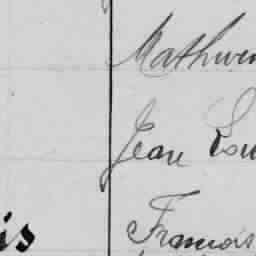 Mathurin
Jean Lou
is François